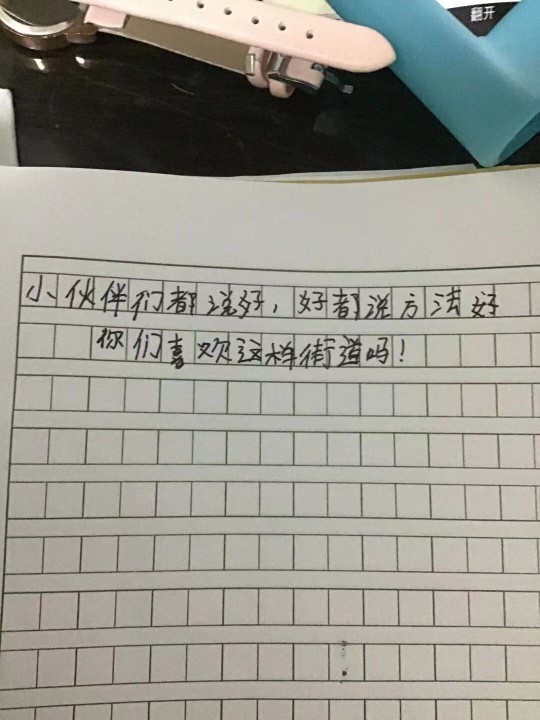 翻开
小伙伴们都说好，好都说方法好
你们喜欢这样街道吗！